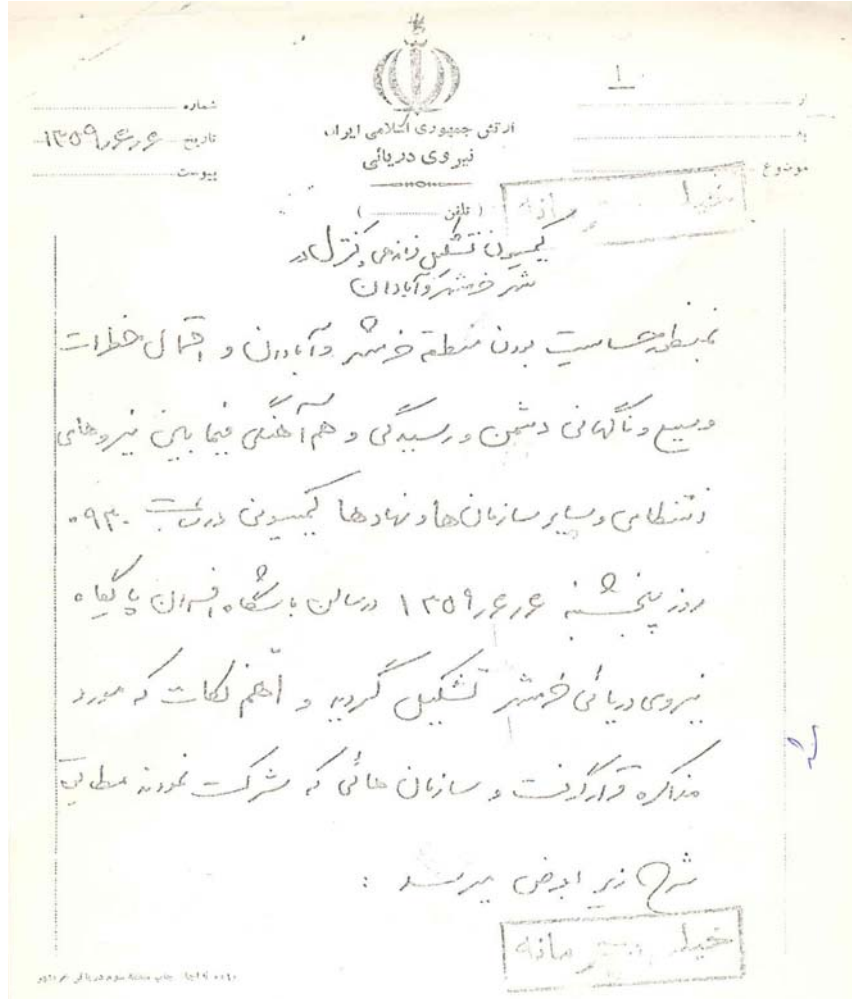 ۱
از
به
موضوع
ارتش جمهوری اسلامی ایران
نیروی دریائی
( تلفن )
شماره
تاریخ ۱۳۵۹٫۶٫۶
پیوست
خیلی محرمانه
کمیسیون تشکیل فرماندهی و کنترل در
شهر خرمشهر و آبادان
بمنظور حساسیت بودن منطقه خرمشهر و آبادان و احتمال خطرات
وسیع و ناگهانی دشمن و رسیدگی و هم آهنگی فیما بین نیروهای
انتظامی و سایر سازمان ها و نهادها کمیسیونی در ساعت ۰۹۳۰
روز پنجشنبه ۱۳۵۹٫۶٫۶ در سالن باشگاه افسران پایگاه
نیروی دریائی خرمشهر تشکیل گردید و اهم نکات که مورد
مذاکره قرار گرفت و سازمان هائی که شرکت نمودند مطالب
شرح زیر بعرض میرسد :
خیلی محرمانه